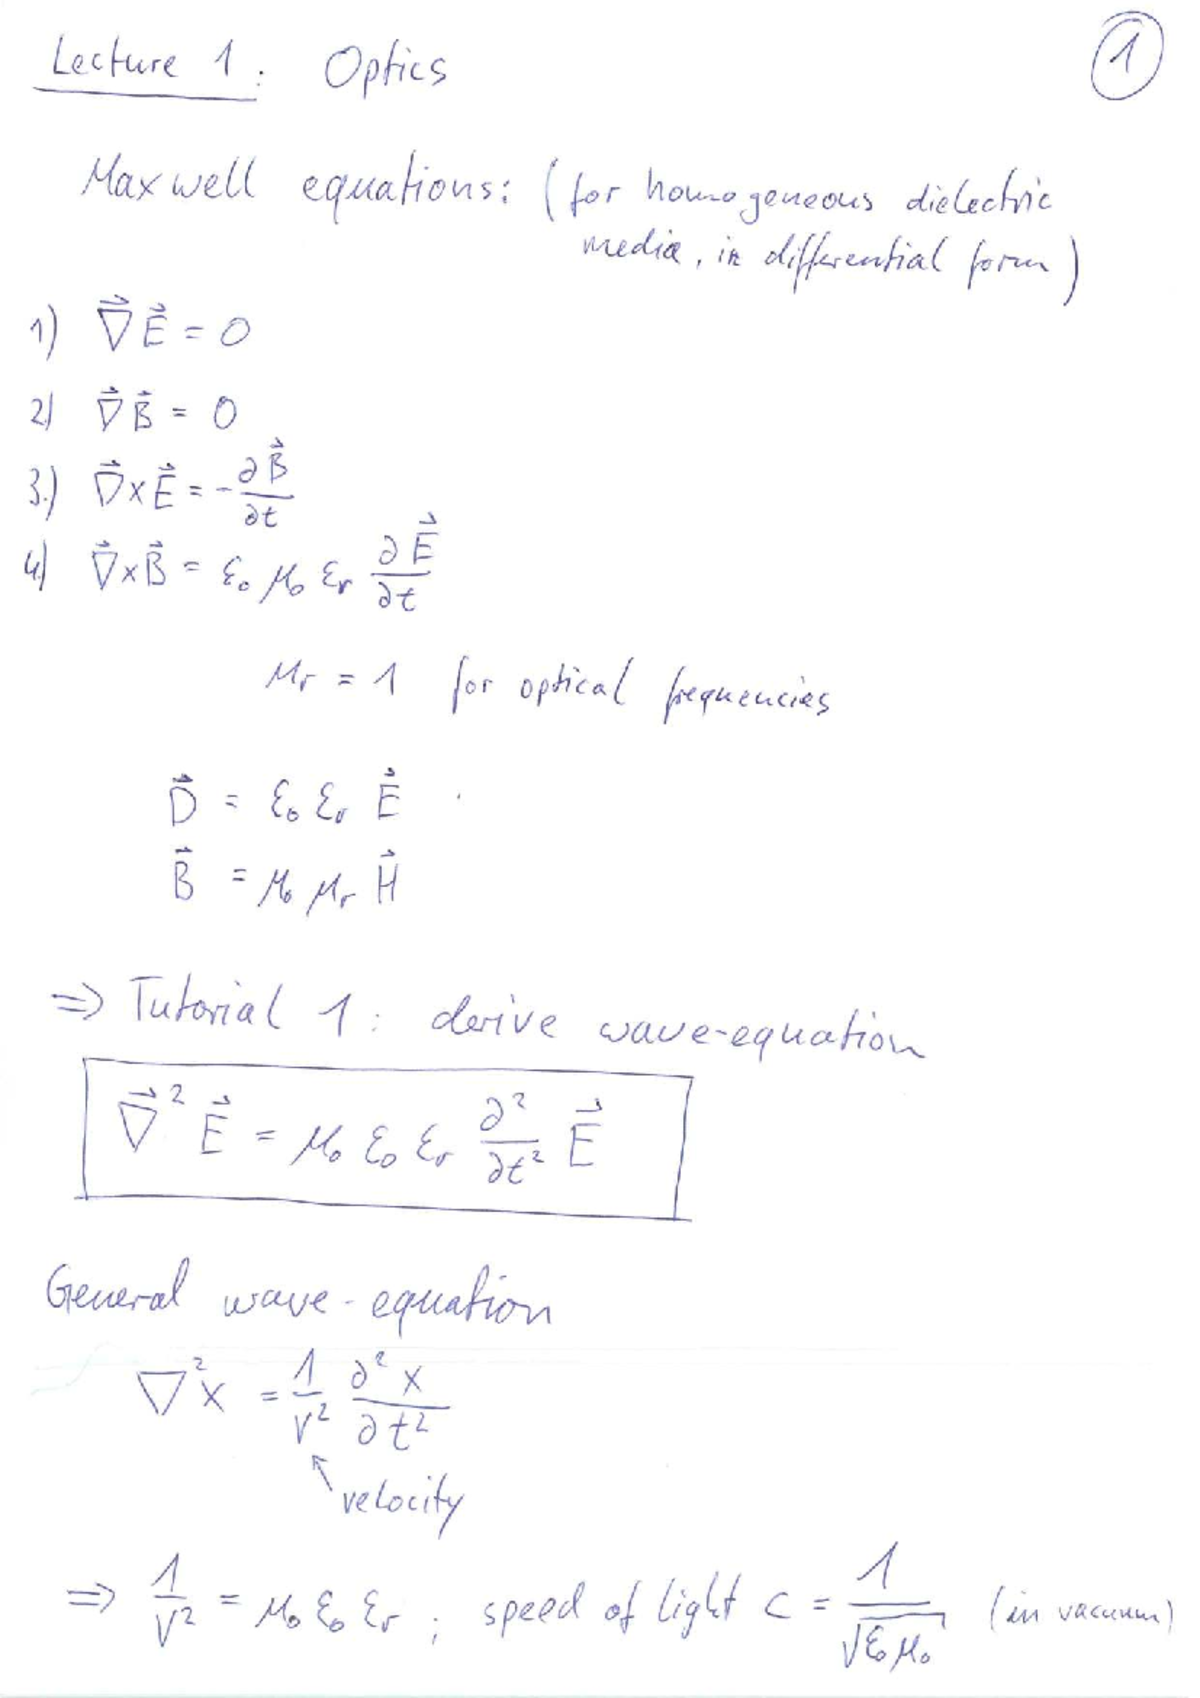 Lecture 1: Optics
1
Maxwell equations: (for homogeneous dielectric
media, in differential form)
1) ∇⃗ E⃗ = 0
2) ∇⃗ B⃗ = 0
3.) ∇⃗ × E⃗ = - ∂B⃗/∂t
4.) ∇⃗ × B⃗ = ε₀ μ₀ εᵣ ∂E⃗/∂t
μᵣ = 1 for optical frequencies
D⃗ = ε₀ εᵣ E⃗
B⃗ = μ₀ μᵣ H⃗
⇒ Tutorial 1: derive wave-equation
∇⃗² E⃗ = μ₀ ε₀ εᵣ ∂²/∂t² E⃗
General wave-equation
∇²x = 1/v² ∂²x/∂t²
↖ velocity
⇒ 1/v² = μ₀ ε₀ εᵣ ; speed of light c = 1/√ε₀ μ₀ (in vacuum)